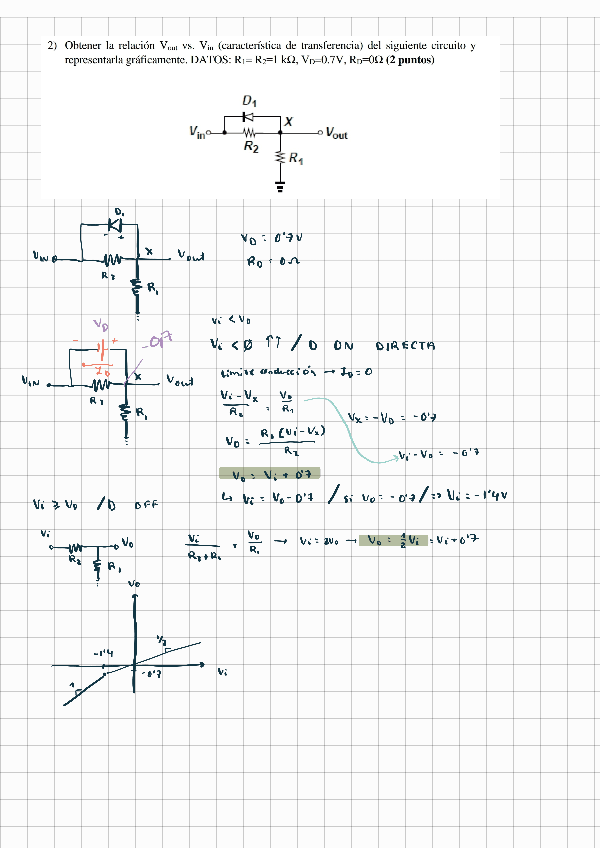 2) Obtener la relación Vout vs. Vin (característica de transferencia) del siguiente circuito y
representarla gráficamente. DATOS: R1= R2=1 kΩ, VD=0.7V, RD=0Ω (2 puntos)
D1
X
Vin
Vout
R2
R1
D1
- +
VIN
X
Vout
R2
R1
VD = 0'7V
RD = 0Ω
Vi < VD
Vi < 0 ↑↑ / D ON DIRECTA
VD
-0'7
- +
ID
VIN
X
Vout
R2
R1
Limite conducción → ID = 0
Vi - Vx / R2 = Vo / R1
Vx = -VD = -0'7
VD = R1 (Vi - Vx) / R2
Vi - Vo = -0'7
Vo = Vi + 0'7
↳ Vi = Vo - 0'7 / si Vo = -0'7 / => Vi = -1'4V
Vi ≥ VD / D OFF
Vi
Vo
R2
R1
Vi / R2+R1 = Vo / R1 → Vi = 2Vo → Vo = 1/2 Vi = Vi + 0'7
Vo
1/2
-1'4
-0'7
Vi
1